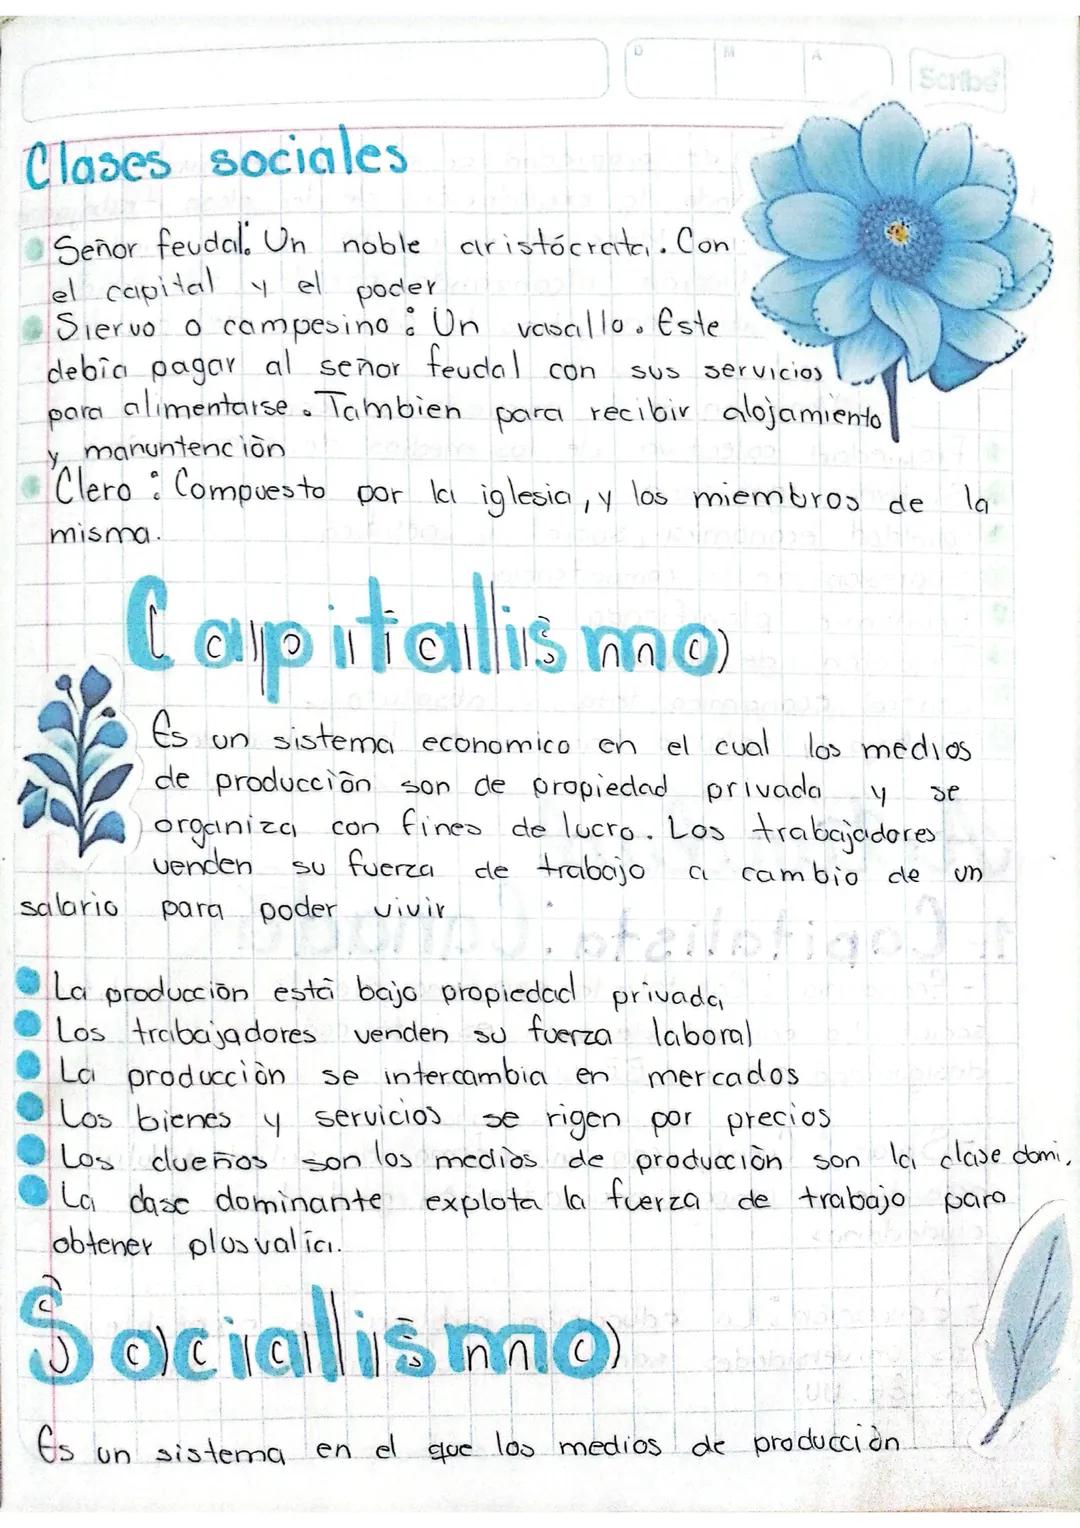 D M A
Scribe
Clases sociales
Señor feudal: Un noble aristócrata. Con
el capital y el poder
Siervo o campesino: Un vasallo. Este
debia pagar al señor feudal con sus servicios
para alimentarse. Tambien para recibir alojamiento
y manuntención
Clero: Compuesto por la iglesia, y los miembros de la
misma.
Capitalismo
Es un sistema economico en el cual los medios
de producción son de propiedad privada y se
organiza con fines de lucro. Los trabajadores
venden su fuerza de trabajo a cambio de un
salario para poder vivir
La producción está bajo propiedad privada
Los trabajadores venden su fuerza laboral
La producción se intercambia en mercados
Los bienes y servicios se rigen por precios
Los dueños son los medios de producción son la clase domi.
La clase dominante explota la fuerza de trabajo para
obtener plusvalía.
Socialismo
Es un sistema en el que los medios de producción